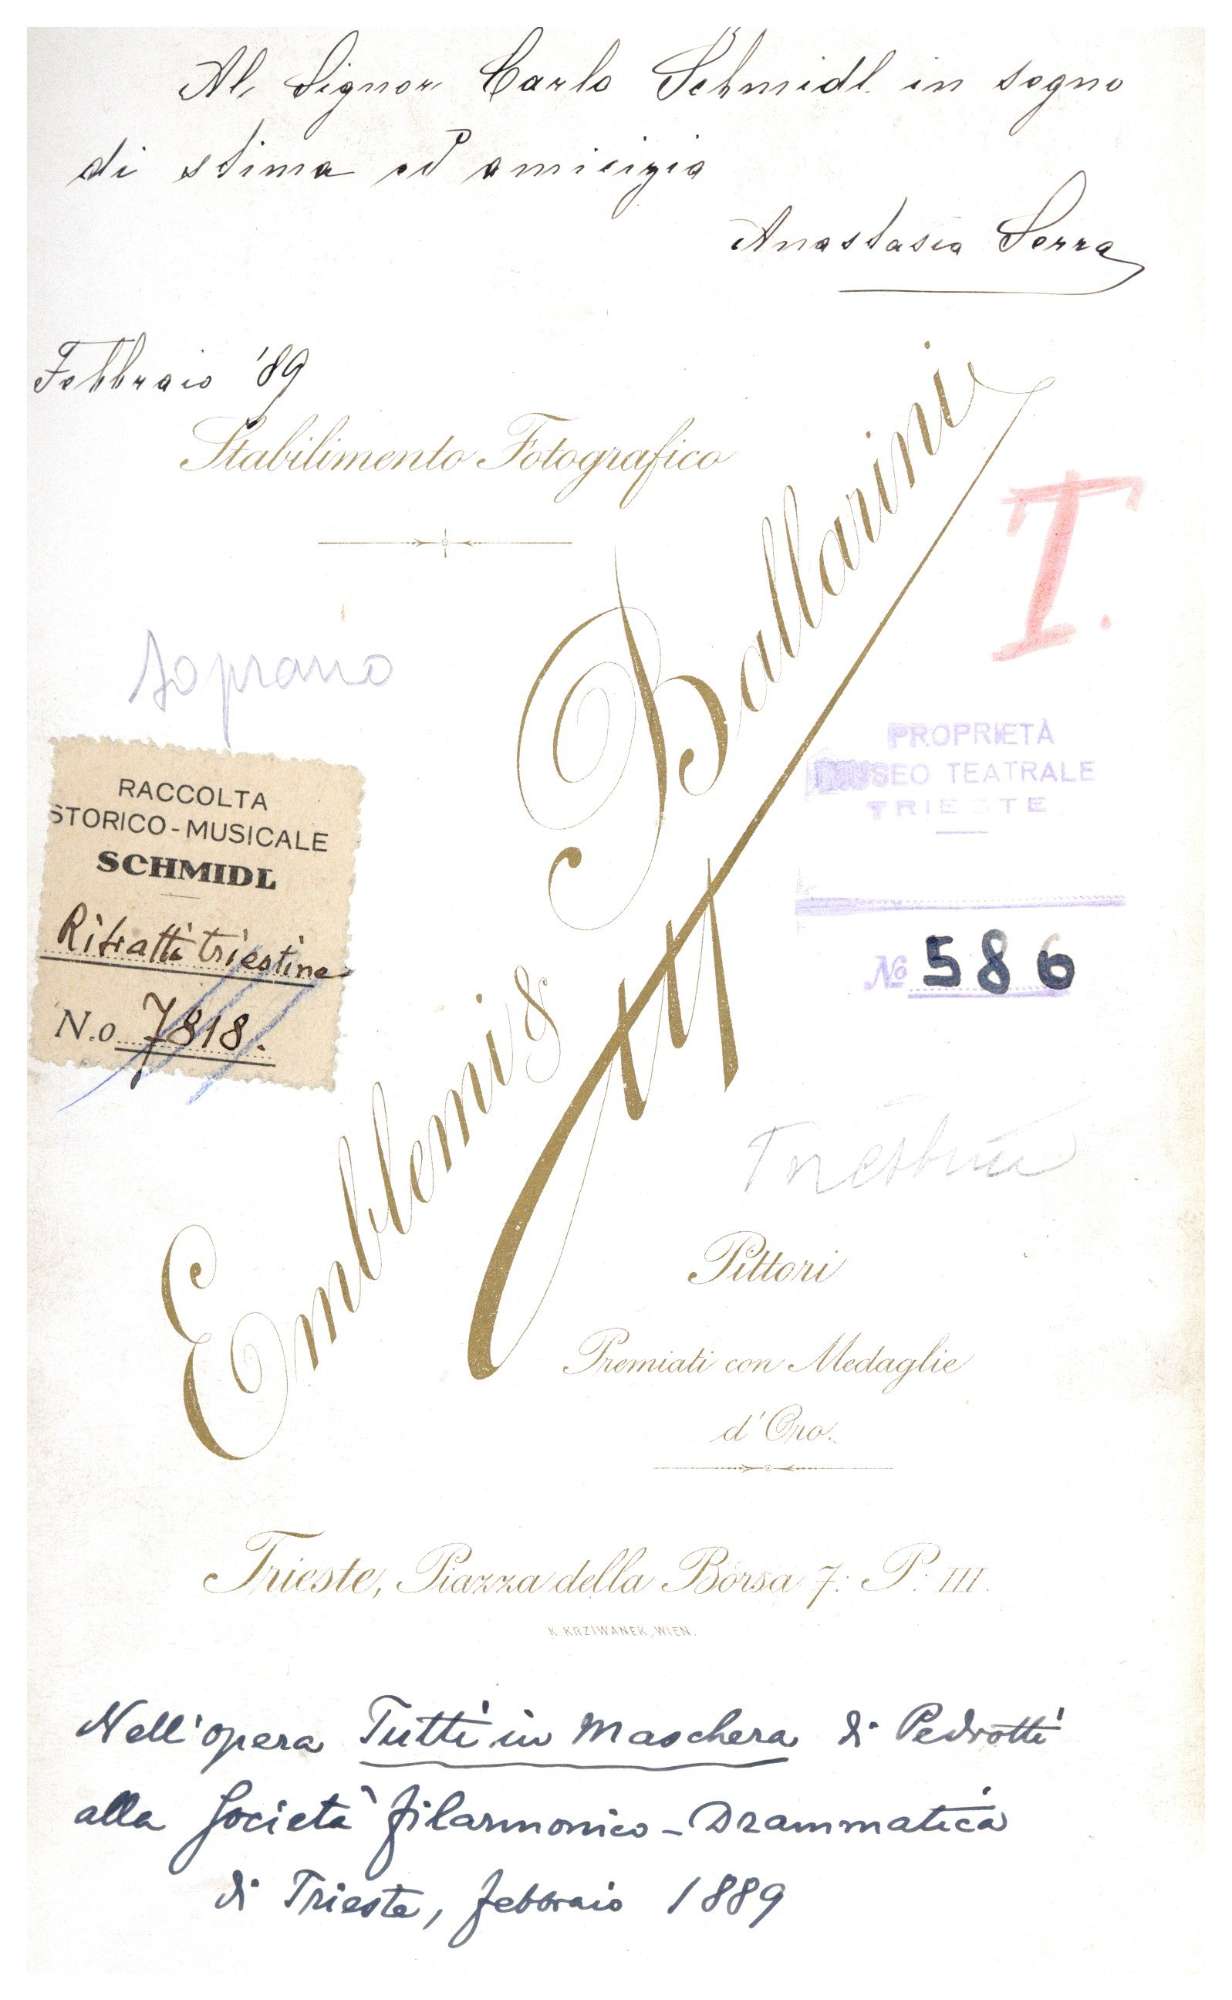 Al Signor Carlo Schmidl in segno
di stima ed amicizia
Anastasia Serra
Febbraio '89
Stabilimento Fotografico
Emblemi & Ballarini
T.
soprano
RACCOLTA
STORICO-MUSICALE
SCHMIDL
Ritratti triestine
N.o 7818.
PROPRIETÀ
MUSEO TEATRALE
TRIESTE
No 586
Triestina
Pittori
Premiati con Medaglie
d'Oro.
Trieste, Piazza della Borsa 7: P: III.
K. KRZIWANEK, WIEN.
Nell'opera Tutti in Maschera di Pedrotti
alla Società filarmonico-Drammatica
di Trieste, febbraio 1889